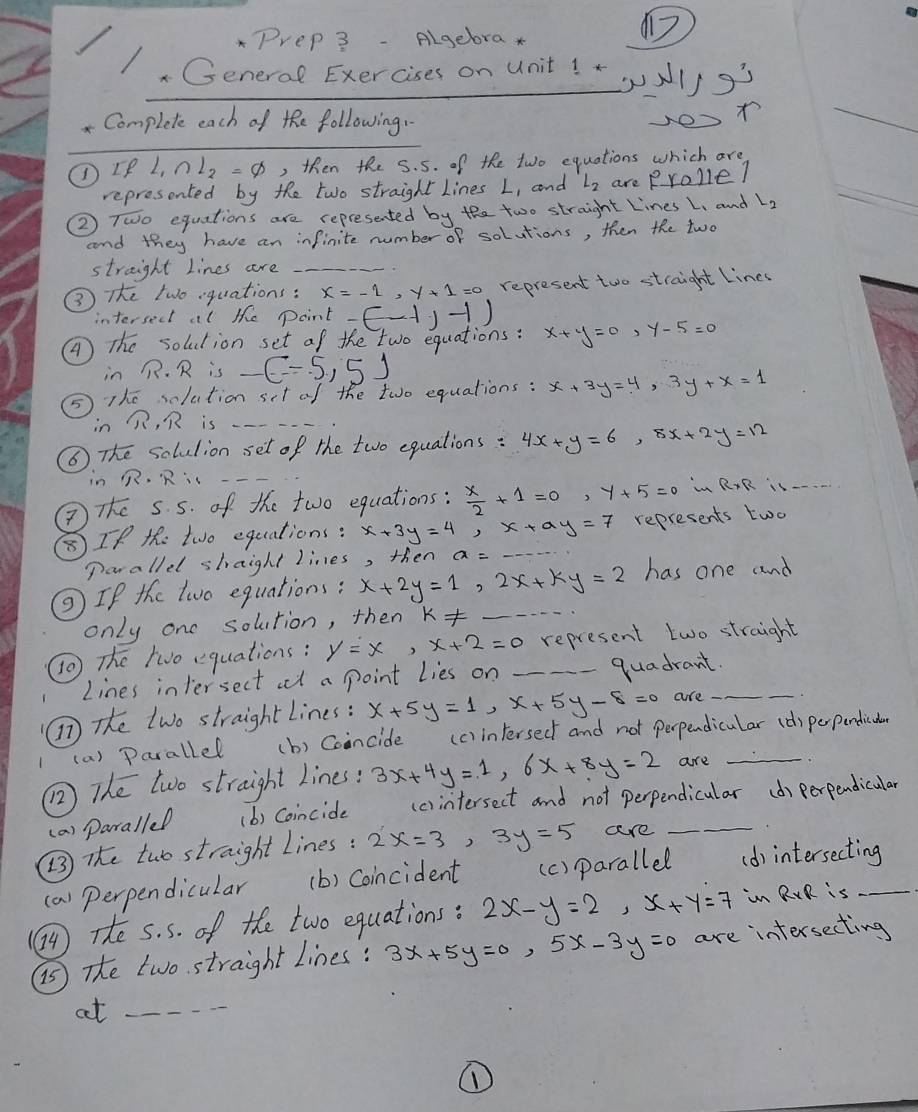 * Prep 3 - Algebra *
17
* General Exercises on Unit 1 *
نور الدين
* Complete each of the following:-
① If L₁ ∩ L₂ = ∅, then the s.s. of the two equations which are
represented by the two straight Lines L₁ and L₂ are Prallel
② Two equations are represented by the two straight Lines L₁ and L₂
and they have an infinite number of solutions, then the two
straight lines are -------.
③ The two equations: x = -1, y + 1 = 0 represent two straight Lines
intersect at the point (-1, -1)
④ The solution set of the two equations: x + y = 0, y - 5 = 0
in R.R is (-5, 5)
⑤ The solution set of the two equations: x + 3y = 4, 3y + x = 1
in R.R is ------.
⑥ The solution set of the two equations: 4x + y = 6, 8x + 2y = 12
in R.R is ---..
⑦ The s.s. of the two equations: x/2 + 1 = 0, y + 5 = 0 in R×R is -----
⑧ If the two equations: x + 3y = 4, x + ay = 7 represents two
Parallel straight lines, then a = ------
⑨ If the two equations: x + 2y = 1, 2x + ky = 2 has one and
only one solution, then k ≠ -------.
⑩ The two equations: y = x, x + 2 = 0 represent two straight
Lines intersect at a point lies on ----- quadrant.
⑪ The two straight Lines: x + 5y = 1, x + 5y - 8 = 0 are ------.
(a) Parallel (b) Coincide (c) intersect and not perpendicular (d) perpendicular
⑫ The two straight lines: 3x + 4y = 1, 6x + 8y = 2 are ------.
(a) Parallel (b) Coincide (c) intersect and not perpendicular (d) perpendicular
⑬ The two straight Lines: 2x = 3, 3y = 5 are ------.
(a) Perpendicular (b) Coincident (c) parallel (d) intersecting
⑭ The s.s. of the two equations: 2x - y = 2, x + y = 7 in R×R is -----.
⑮ The two straight Lines: 3x + 5y = 0, 5x - 3y = 0 are intersecting
at -----
①